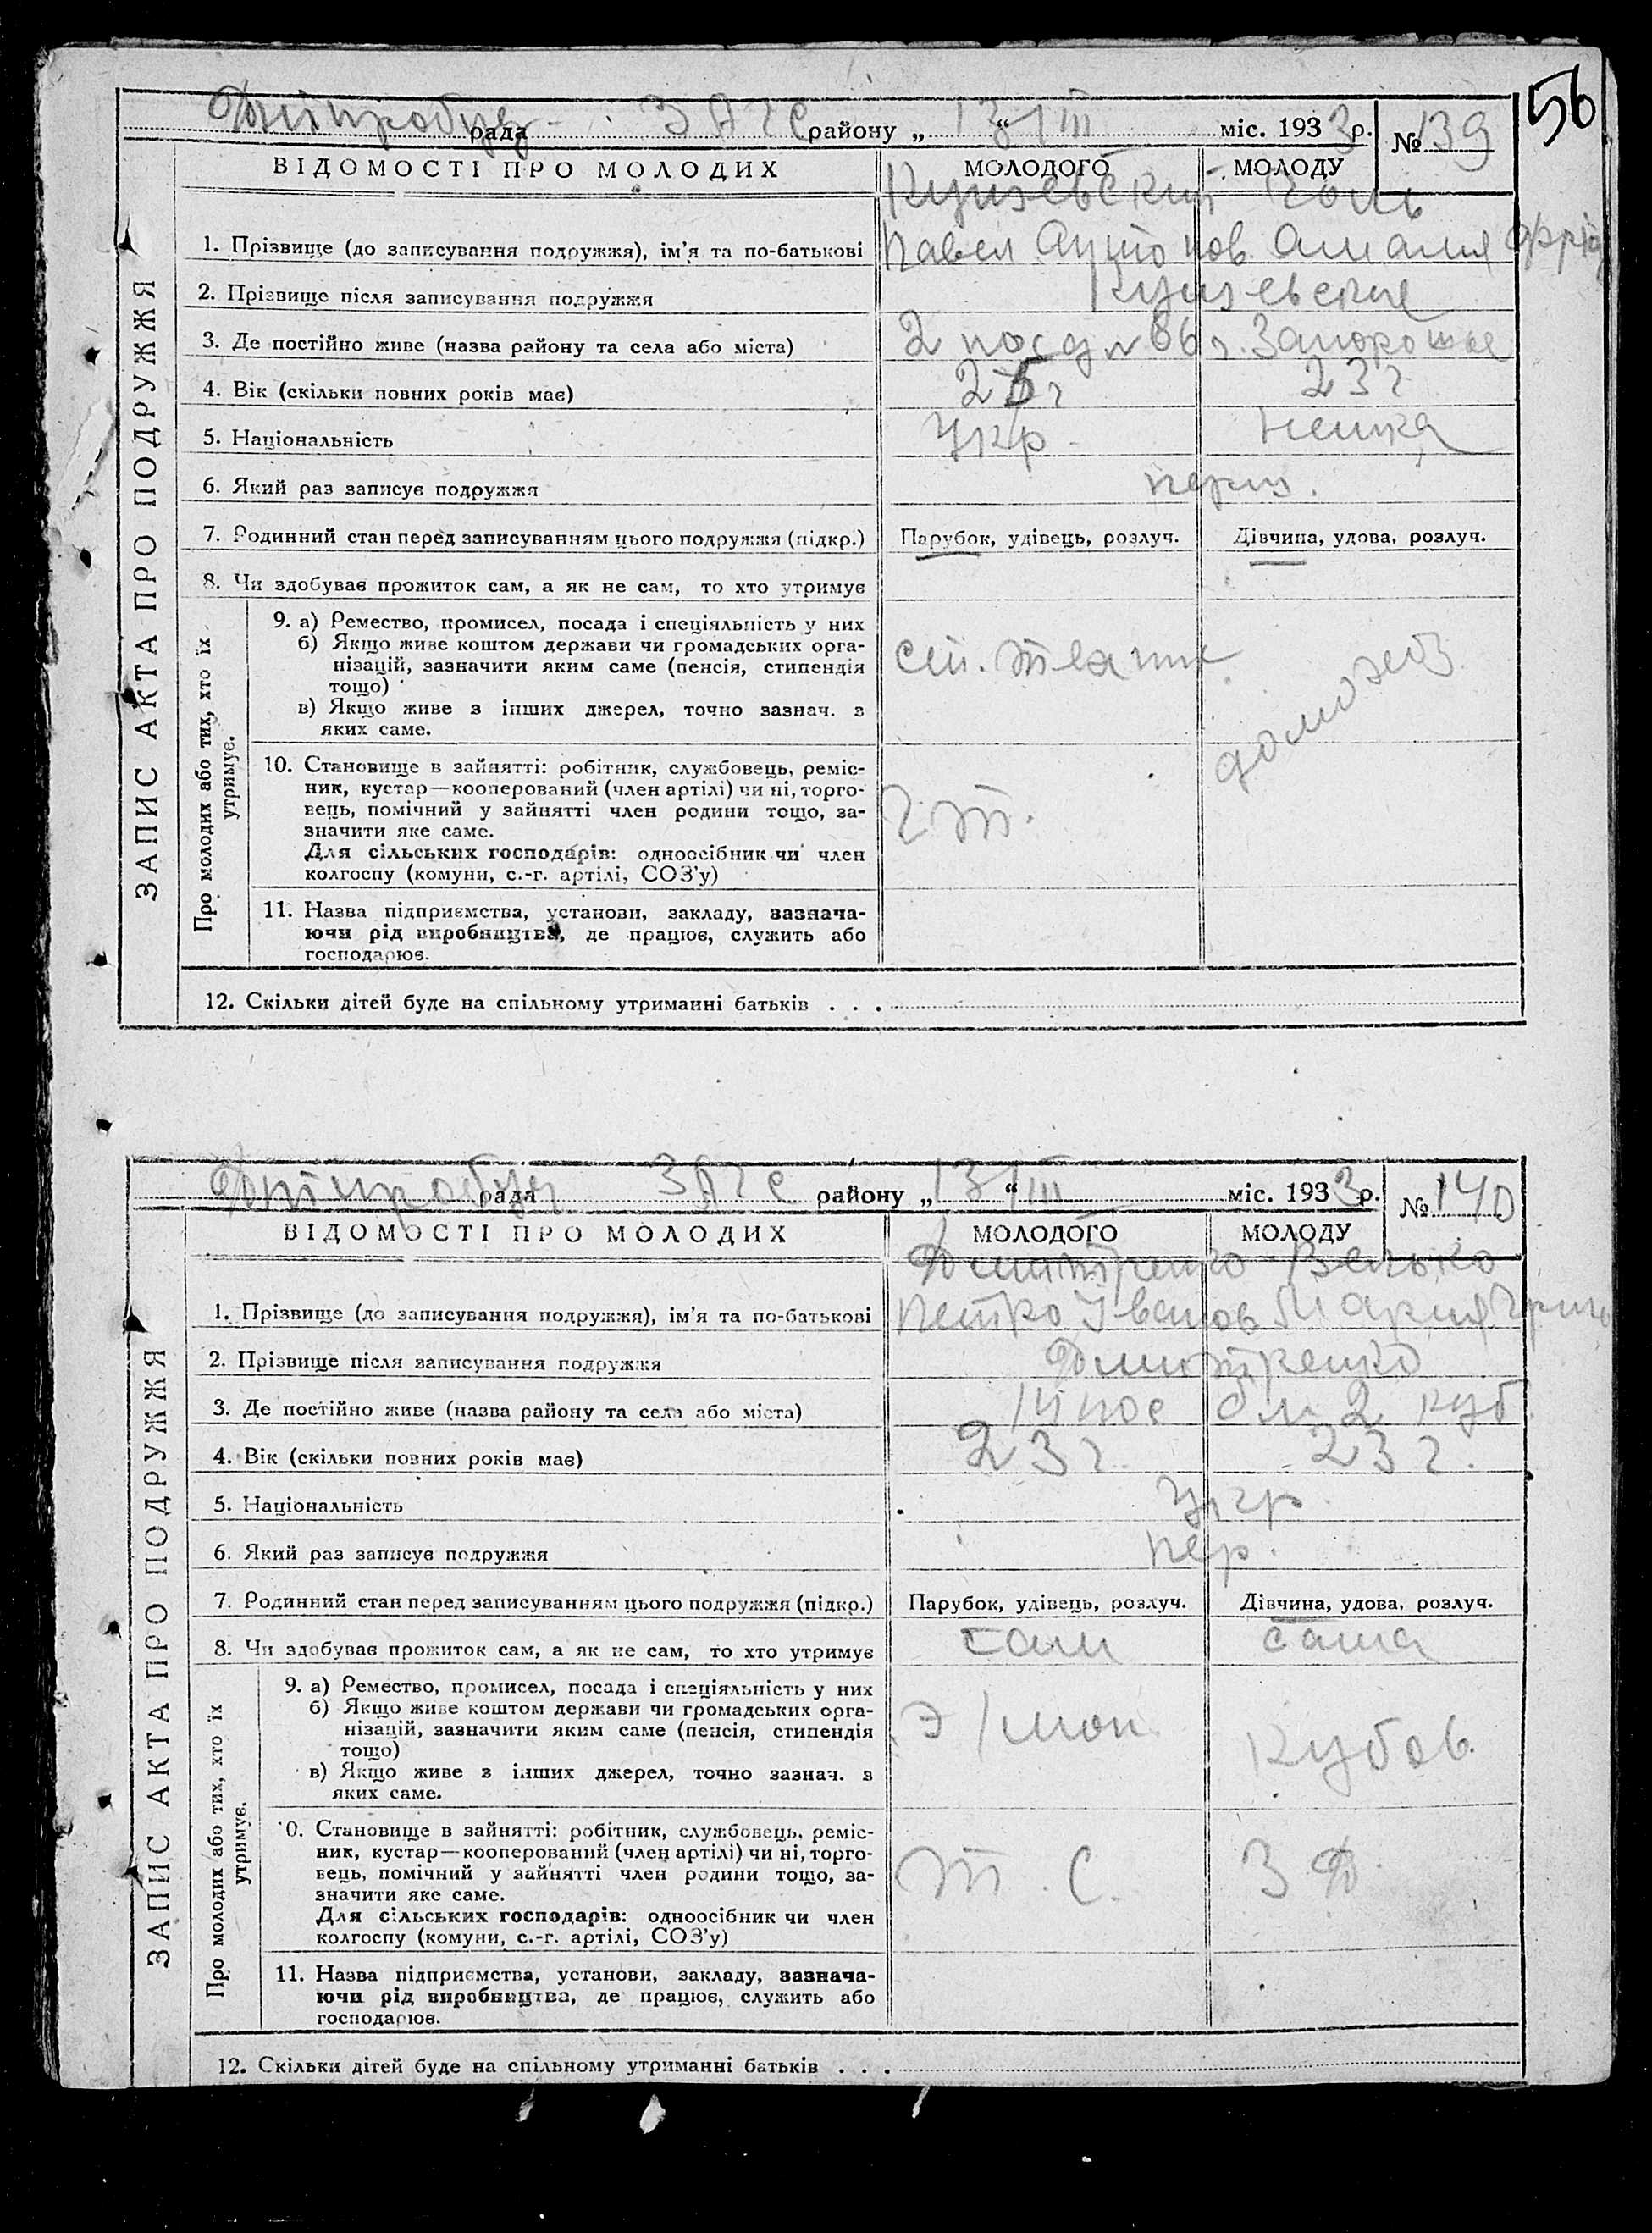 56
Дніпробуд рада ЗАГС району „ 13/III “ міс. 1933 р. № 139
ВІДОМОСТІ ПРО МОЛОДИХ МОЛОДОГО МОЛОДУ
ЗАПИС АКТА ПРО ПОДРУЖЖЯ
1. Прізвище (до записування подружжя), ім’я та по-батькові Павел Антонов Амалия
2. Прізвище після записування подружжя
3. Де постійно живе (назва району та села або міста) 2 пос д № 86 г. Запорожье
4. Вік (скільки повних років має) 25 г 23 г
5. Національність Укр. Немка
6. Який раз записує подружжя перш.
7. Родинний стан перед записуванням цього подружжя (підкр.) Парубок, удівець, розлуч. Дівчина, удова, розлуч.
8. Чи здобував прожиток сам, а як не сам, то хто утримує
Про молодих або тих, хто їх утримує.
9. а) Ремество, промисел, посада і спеціяльність у них
б) Якщо живе коштом держави чи громадських орга-
нізацій, зазначити яким саме (пенсія, стипендія
тощо)
в) Якщо живе з інших джерел, точно зазнач. з
яких саме.
домохоз
10. Становище в зайнятті: робітник, службовець, реміс-
ник, кустар—кооперований (член артілі) чи ні, торго-
вець, помічний у зайнятті член родини тощо, за-
значити яке саме.
Для сільських господарів: одноосібник чи член
колгоспу (комуни, с.-г. артілі, СОЗ’у)
11. Назва підприємства, установи, закладу, зазнача-
ючи рід виробництва, де працює, служить або
господарює.
12. Скільки дітей буде на спільному утриманні батьків . . .
Дніпробуд рада ЗАГС району „ 13/III “ міс. 1933 р. № 140
ВІДОМОСТІ ПРО МОЛОДИХ МОЛОДОГО МОЛОДУ
ЗАПИС АКТА ПРО ПОДРУЖЖЯ
Дмитренко
1. Прізвище (до записування подружжя), ім’я та по-батькові Петро Іванов Мария
2. Прізвище після записування подружжя Дмитренко
3. Де постійно живе (назва району та села або міста)
4. Вік (скільки повних років має) 23 г. 23 г.
5. Національність Укр.
6. Який раз записує подружжя пер.
7. Родинний стан перед записуванням цього подружжя (підкр.) Парубок, удівець, розлуч. Дівчина, удова, розлуч.
8. Чи здобував прожиток сам, а як не сам, то хто утримує сам сама
Про молодих або тих, хто їх утримує.
9. а) Ремество, промисел, посада і спеціяльність у них
б) Якщо живе коштом держави чи громадських орга-
нізацій, зазначити яким саме (пенсія, стипендія
тощо)
в) Якщо живе з інших джерел, точно зазнач. з
яких саме.
Кубов.
10. Становище в зайнятті: робітник, службовець, реміс-
ник, кустар—кооперований (член артілі) чи ні, торго-
вець, помічний у зайнятті член родини тощо, за-
значити яке саме.
Для сільських господарів: одноосібник чи член
колгоспу (комуни, с.-г. артілі, СОЗ’у)
Т. С. З Д.
11. Назва підприємства, установи, закладу, зазнача-
ючи рід виробництва, де працює, служить або
господарює.
12. Скільки дітей буде на спільному утриманні батьків . . .